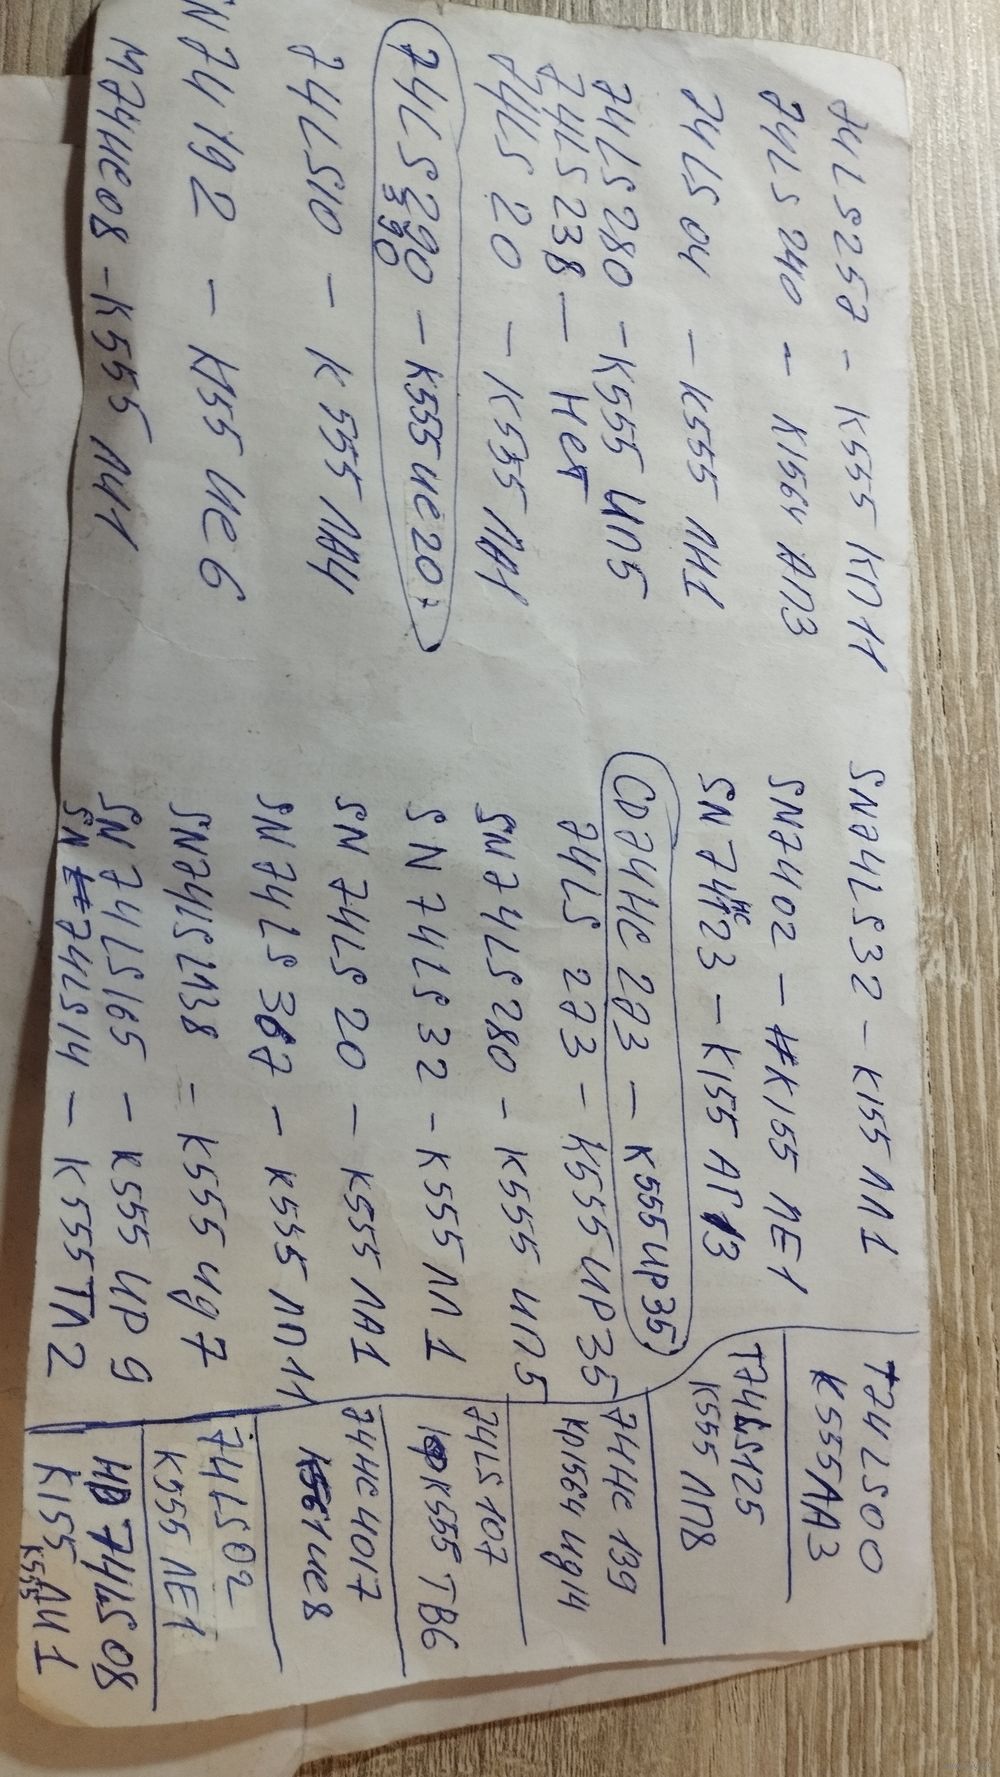 74LS257 - К555 КП11
74LS240 - К1564 АП3
74LS04 - К555 ЛН1
74LS280 - К555 ИП5
74LS238 - Нет
74LS20 - К555 ЛА1
74LS290 - К555 ие20
390
74LS10 - К555 ЛА4
N74192 - К155 ие6
M74HC08 - К555 ЛИ1
SN74LS32 - К155 ЛЛ1
SN7402 - К155 ЛЕ1
SN74HC123 - К155 АГ3
CD74HC273 - К555ИР35
74LS273 - К555 ИР35
SN74LS280 - К555 ИП5
SN74LS32 - К555 ЛЛ1
SN74LS20 - К555 ЛА1
SN74LS367 - К555 ЛП11
SN74LS138 - К555 ИД7
SN74LS165 - К555 ИР9
SN 74LS14 - К555ТЛ2
T74LS00
К555ЛА3
T74LS125
К555 ЛП8
74HC139
КР1564 ИД14
74LS107
К555 ТВ6
74HC4017
К561ие8
74LS02
К555 ЛЕ1
74LS08
К155 ЛИ1
К555